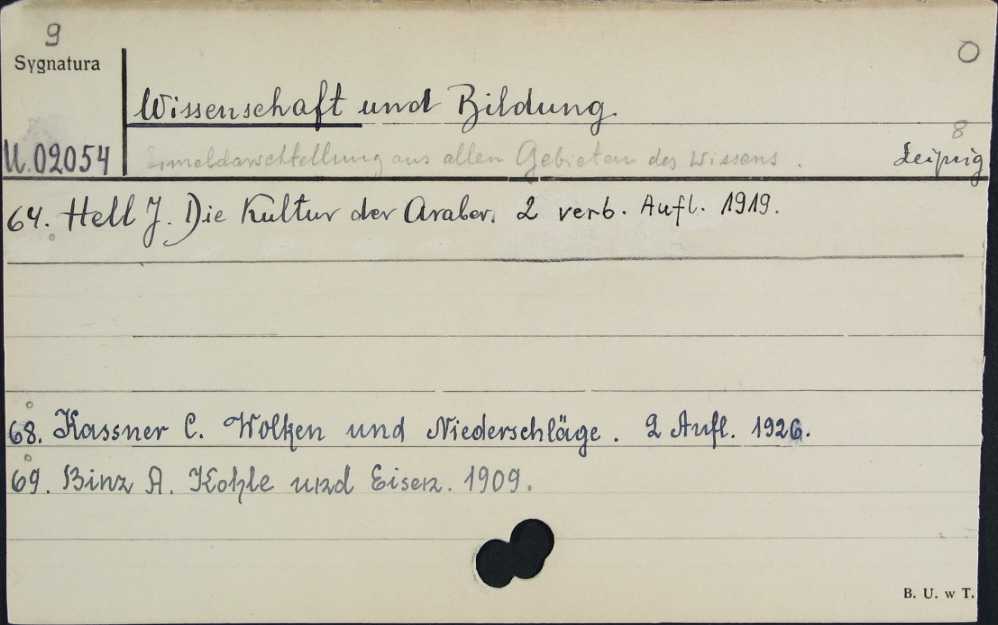 9
Sygnatura
O
Wissenschaft und Bildung.
8
U.02054
aus allen Gebieten des Wissens.
Leipzig
64. Hell J. Die Kultur der Araber. 2 verb. Aufl. 1919.
68. Kassner C. Wolken und Niederschläge. 2 Aufl. 1926.
69. Binz A. Kohle und Eisen. 1909.
B. U. w T.